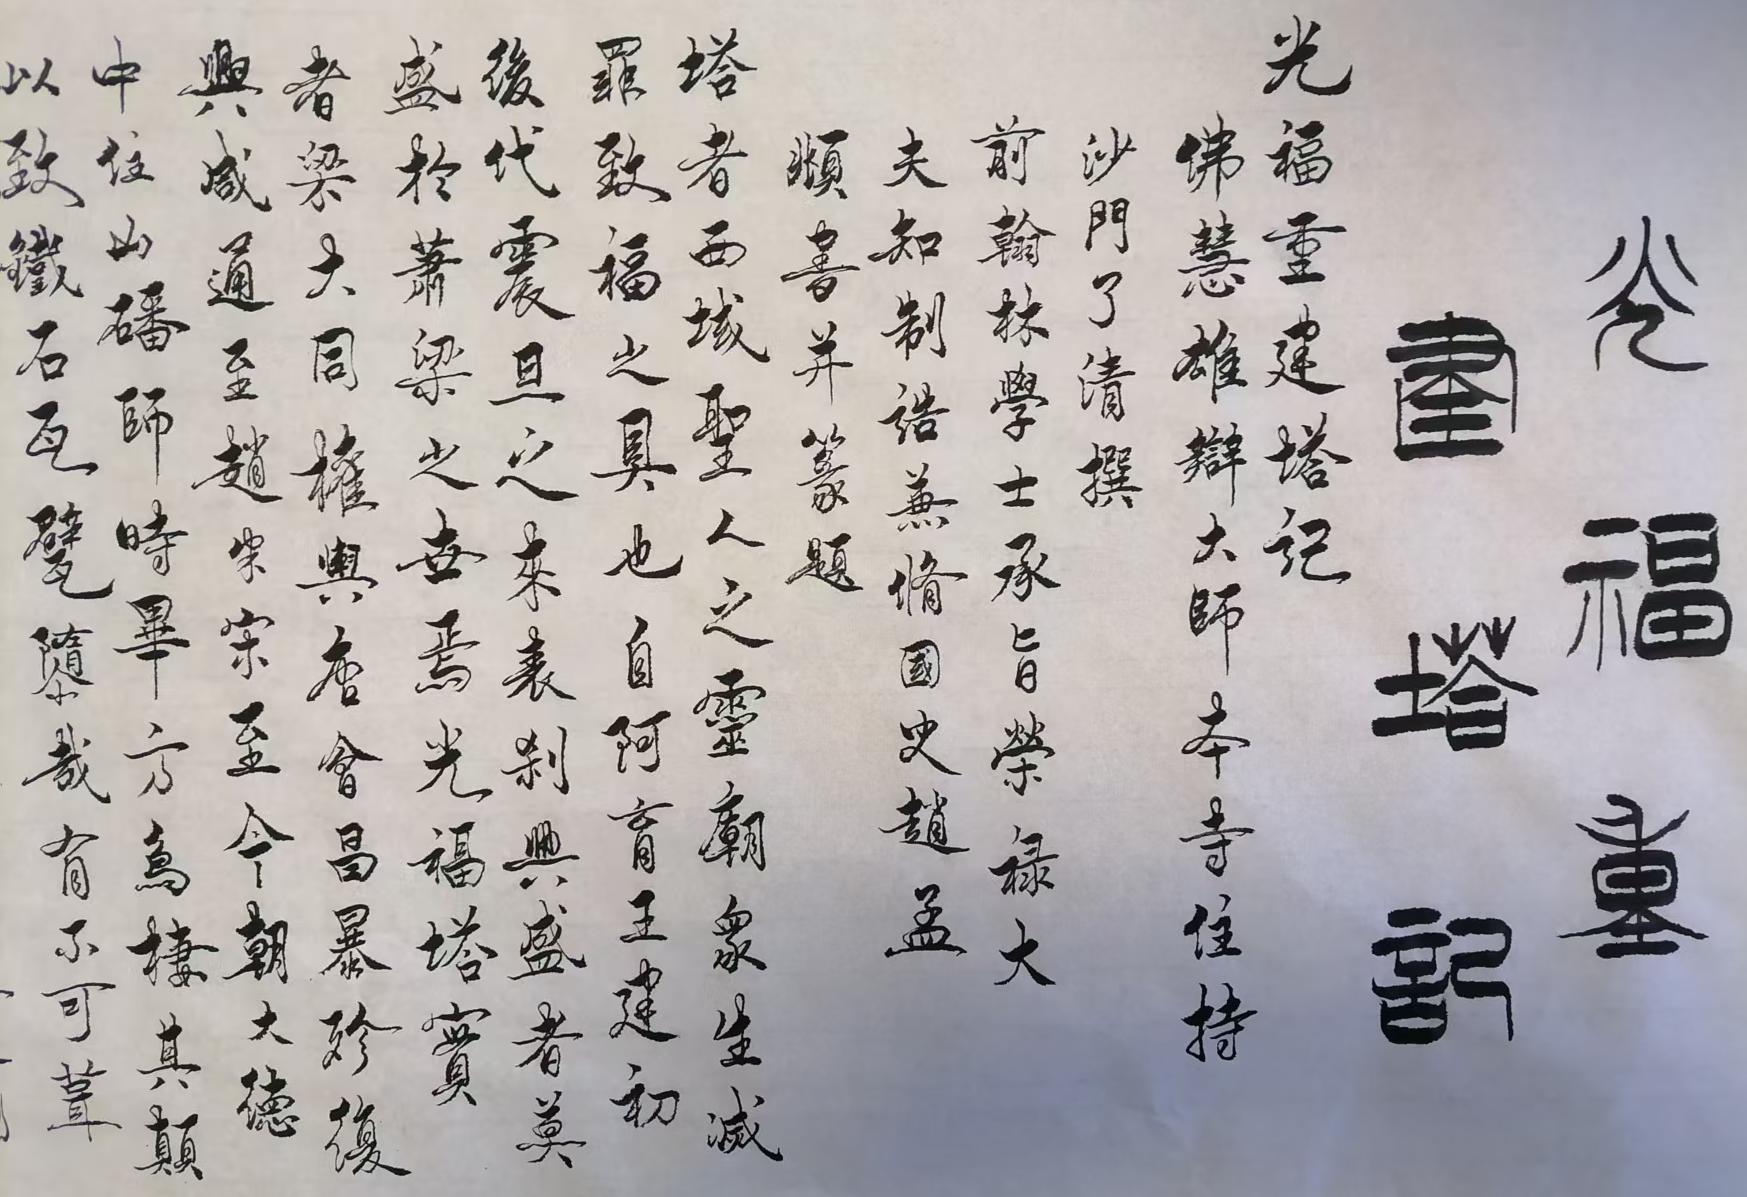 光福重
建塔記
光福重建塔記
佛慧雄辯大師本寺住持
沙門了清撰
前翰林學士承旨榮祿大
夫知制誥兼脩國史趙孟
頫書并篆題
塔者西域聖人之靈廟衆生滅
罪致福之具也自阿育王建初
後代震旦之來表刹興盛者莫
盛於蕭梁之世焉光福塔寶
者梁大同權輿唐會昌暴殄復
興咸通至趙宋宗至今朝大德
中住山磻師時畢方鳥棲其顛
以致鐵石瓦甓隳哉有不可葺